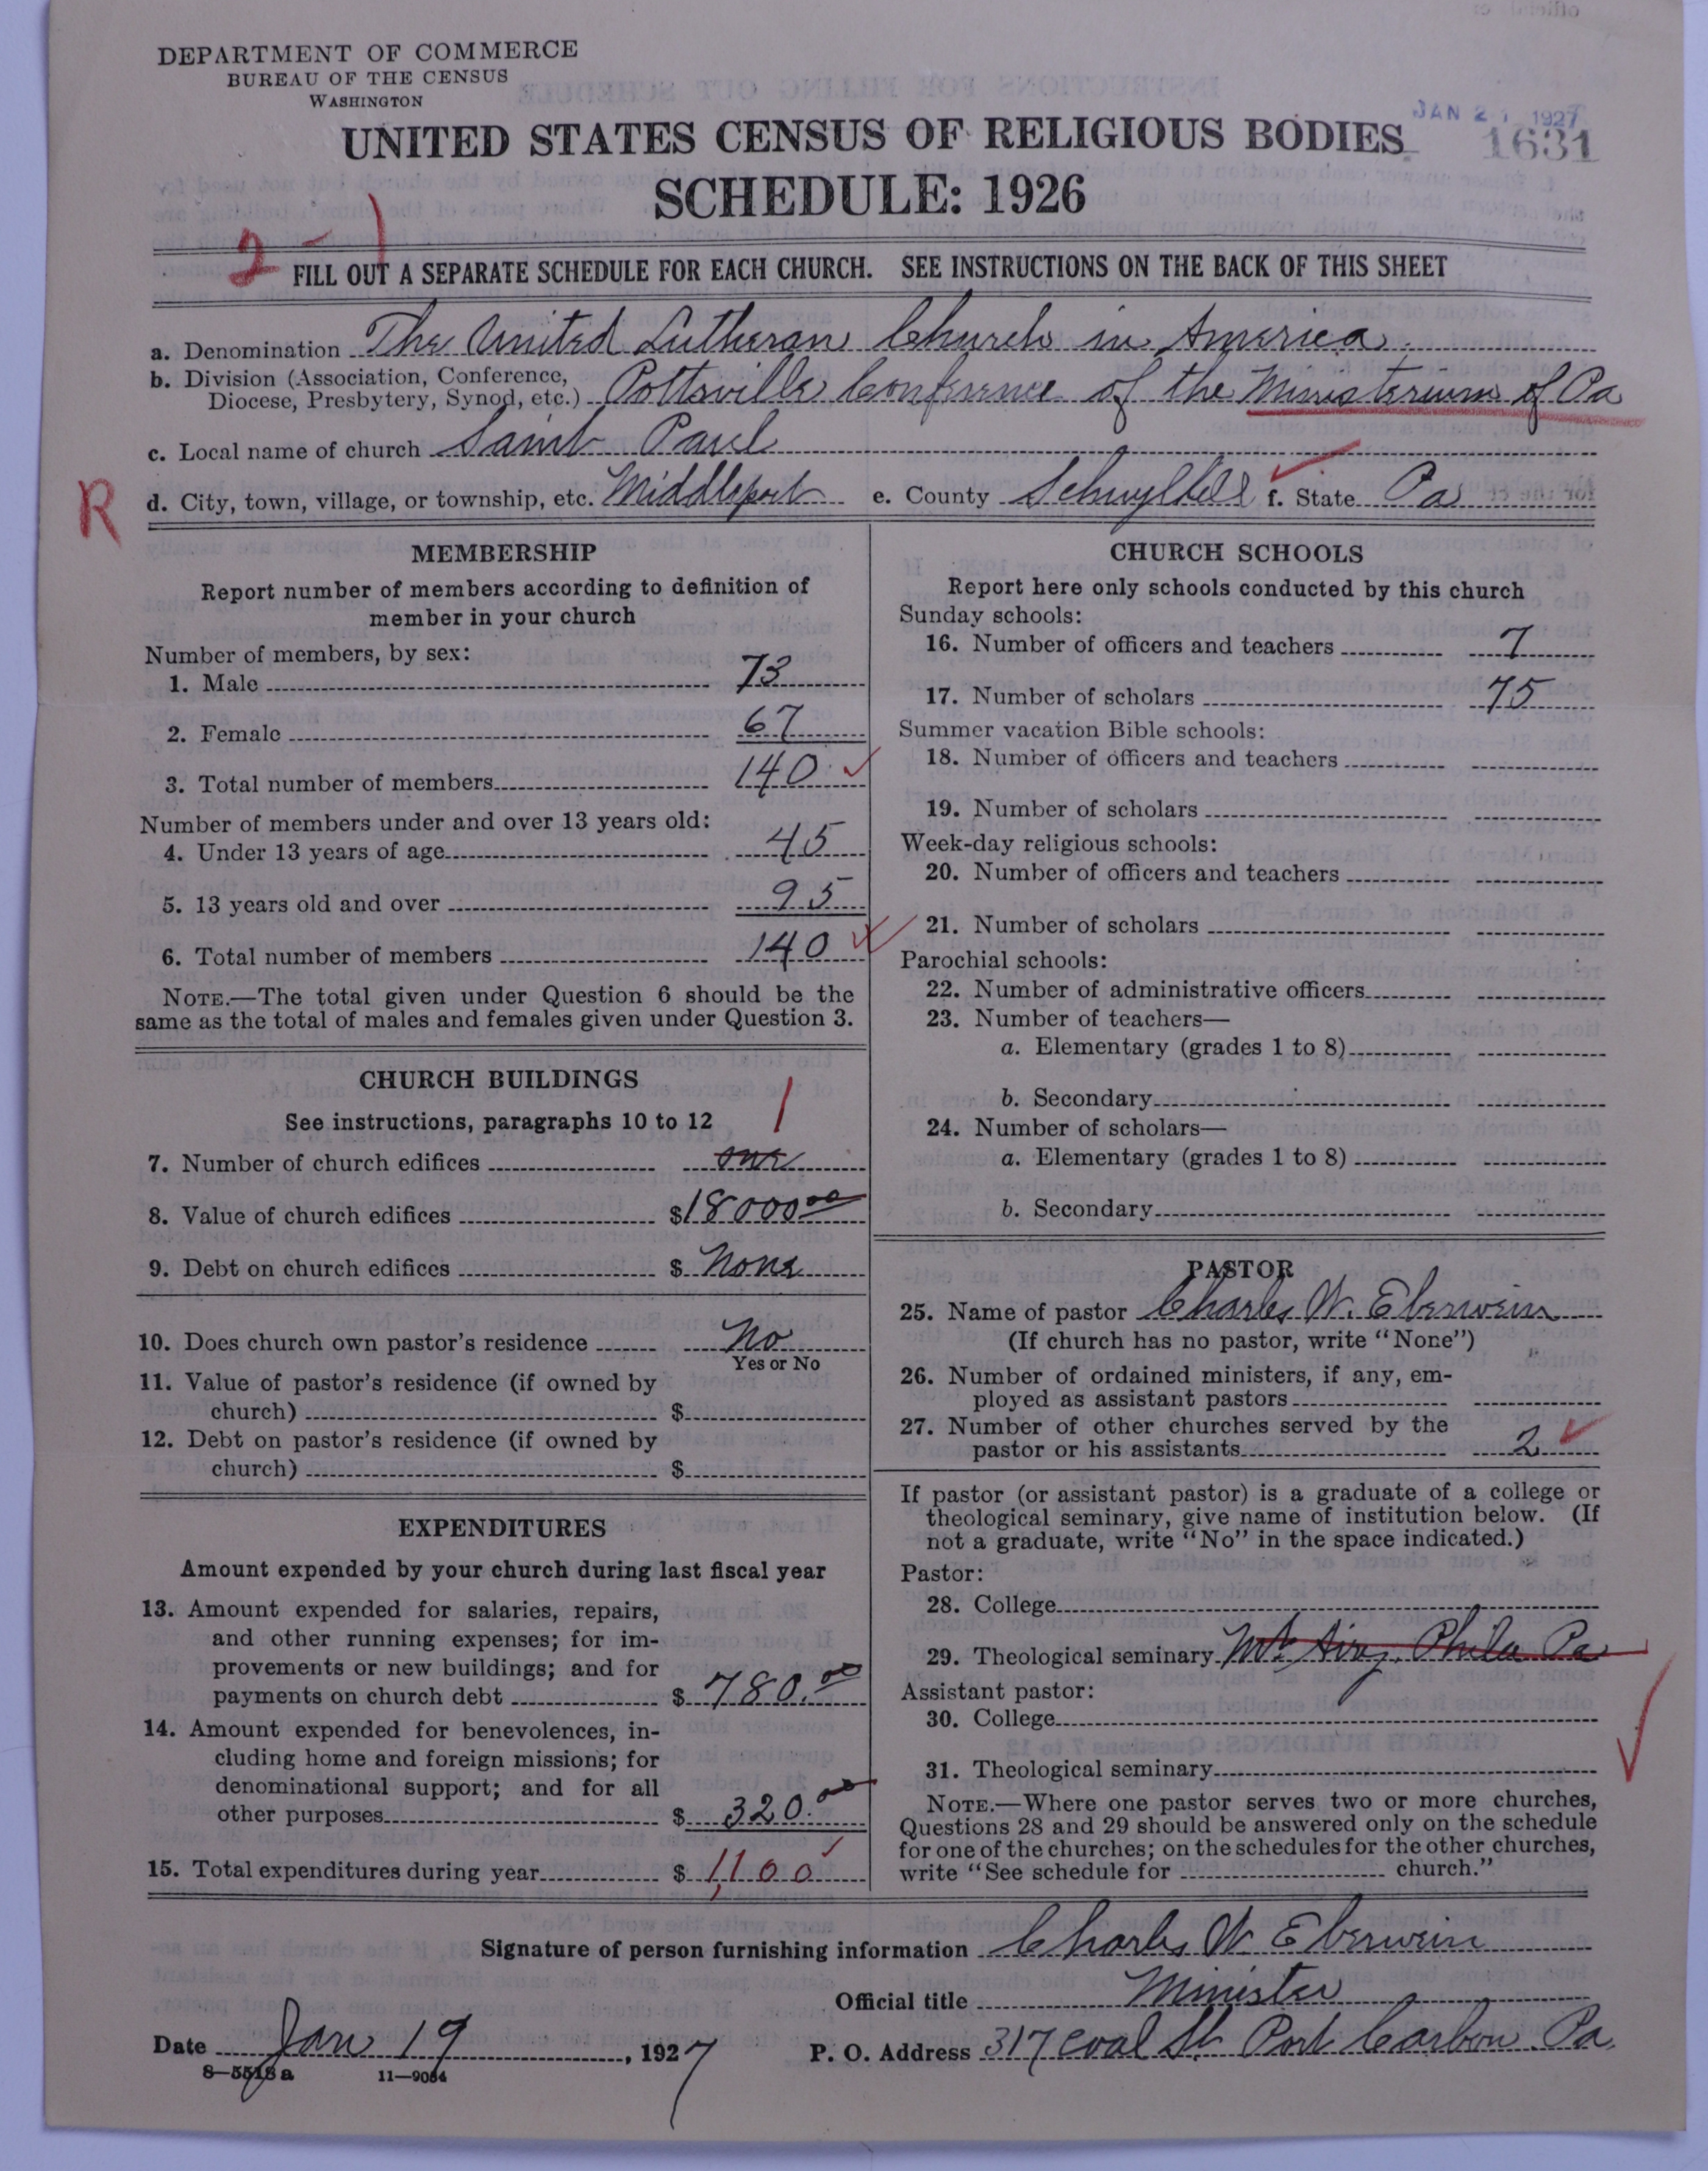 DEPARTMENT OF COMMERCE
BUREAU OF THE CENSUS
WASHINGTON
JAN 2 1927
1631
UNITED STATES CENSUS OF RELIGIOUS BODIES
SCHEDULE: 1926
2-1
FILL OUT A SEPARATE SCHEDULE FOR EACH CHURCH. SEE INSTRUCTIONS ON THE BACK OF THIS SHEET
a. Denomination The United Lutheran Church in America
b. Division (Association, Conference,
Diocese, Presbytery, Synod, etc.) Pottsville Conference of the Ministerium of Pa
c. Local name of church Saint Paul
R
d. City, town, village, or township, etc. Middleport e. County Schuylkill f. State Pa
MEMBERSHIP
Report number of members according to definition of
member in your church
Number of members, by sex:
1. Male 73
2. Female 67
3. Total number of members 140 ✓
Number of members under and over 13 years old:
4. Under 13 years of age 45
5. 13 years old and over 95
6. Total number of members 140 ✓
NOTE.—The total given under Question 6 should be the
same as the total of males and females given under Question 3.
CHURCH BUILDINGS
See instructions, paragraphs 10 to 12
1
7. Number of church edifices one
8. Value of church edifices $18000 00
9. Debt on church edifices $ None
10. Does church own pastor's residence No
Yes or No
11. Value of pastor's residence (if owned by
church) $
12. Debt on pastor's residence (if owned by
church) $
EXPENDITURES
Amount expended by your church during last fiscal year
13. Amount expended for salaries, repairs,
and other running expenses; for im-
provements or new buildings; and for
payments on church debt $ 780.00
14. Amount expended for benevolences, in-
cluding home and foreign missions; for
denominational support; and for all
other purposes $ 320.00
15. Total expenditures during year $ 1,100 ✓
CHURCH SCHOOLS
Report here only schools conducted by this church
Sunday schools:
16. Number of officers and teachers 7
17. Number of scholars 75
Summer vacation Bible schools:
18. Number of officers and teachers
19. Number of scholars
Week-day religious schools:
20. Number of officers and teachers
21. Number of scholars
Parochial schools:
22. Number of administrative officers
23. Number of teachers—
a. Elementary (grades 1 to 8)
b. Secondary
24. Number of scholars—
a. Elementary (grades 1 to 8)
b. Secondary
PASTOR
25. Name of pastor Charles W. Eberwein
(If church has no pastor, write "None")
26. Number of ordained ministers, if any, em-
ployed as assistant pastors
27. Number of other churches served by the
pastor or his assistants 2 ✓
If pastor (or assistant pastor) is a graduate of a college or
theological seminary, give name of institution below. (If
not a graduate, write "No" in the space indicated.)
Pastor:
28. College
29. Theological seminary Mt. Airy, Phila Pa
Assistant pastor:
30. College
31. Theological seminary
NOTE.—Where one pastor serves two or more churches,
Questions 28 and 29 should be answered only on the schedule
for one of the churches; on the schedules for the other churches,
write "See schedule for church."
Signature of person furnishing information Charles W. Eberwein
Official title Minister
Date Jan 19, 1927 P. O. Address 317 Coal St. Port Carbon. Pa
8—5518a 11—9084